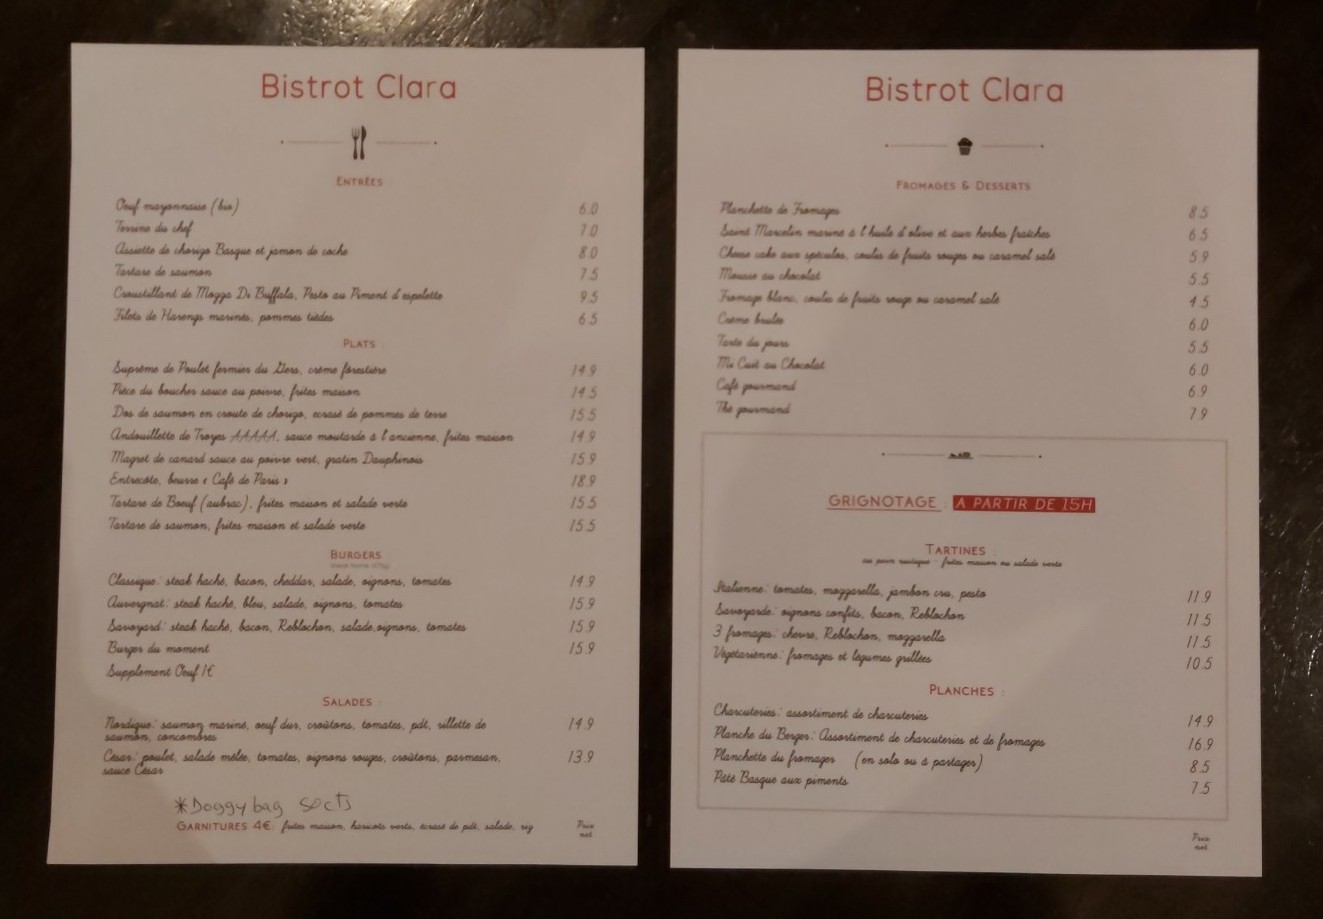 Bistrot Clara
ENTRÉES
Oeuf mayonnaise (bio) 6.0
Terrine du chef 7.0
Assiette de chorizo Basque et jamon de coche 8.0
Tartare de saumon 7.5
Croustillant de Mozza Di Buffala, Pesto au Piment d'espelette 9.5
Filets de Harengs marinés, pommes tièdes 6.5
PLATS :
Suprème de Poulet fermier du Gers, crème forestière 14.9
Pièce du boucher sauce au poivre, frites maison 14.5
Dos de saumon en croute de chorizo, ecrasé de pommes de terre 15.5
Andouillette de Troyes AAAAA, sauce moutarde à l'ancienne, frites maison 14.9
Magret de canard sauce au poivre vert, gratin Dauphinois 15.9
Entrecôte, beurre « Café de Paris » 18.9
Tartare de Boeuf (aubrac), frites maison et salade verte 15.5
Tartare de saumon, frites maison et salade verte 15.5
BURGERS
Classique: steak haché, bacon, cheddar, salade, oignons, tomates 14.9
Auvergnat: steak haché, bleu, salade, oignons, tomates 15.9
Savoyard: steak haché, bacon, Reblochon, salade,oignons, tomates 15.9
Burger du moment 15.9
Supplement Oeuf 1€
SALADES :
Nordique: saumon mariné, oeuf dur, croûtons, tomates, pdt, rillette de 14.9
saumon, concombres
César: poulet, salade mêlée, tomates, oignons rouges, croûtons, parmesan, 13.9
sauce César
*Doggy bag 50cts
GARNITURES 4€: frites maison, haricots verts, écrasé de pdt, salade, riz
Prix
net
Bistrot Clara
FROMAGES & DESSERTS
Planchette de Fromages 8.5
Saint Marcelin mariné à l'huile d'olive et aux herbes fraîches 6.5
Cheese cake aux spéculos, coulis de fruits rouges ou caramel salé 5.9
Mousse au chocolat 5.5
Fromage blanc, coulis de fruits rouge ou caramel salé 4.5
Crème brulée 6.0
Tarte du jours 5.5
Mi Cuit au Chocolat 6.0
Café gourmand 6.9
Thé gourmand 7.9
GRIGNOTAGE : A PARTIR DE 15H
TARTINES :
au pain rustique - frites maison ou salade verte
Italienne: tomates, mozzarella, jambon cru, pesto 11.9
Savoyarde: oignons confits, bacon, Reblochon 11.5
3 fromages: chevre, Reblochon, mozzarella 11.5
Végétarienne: fromages et légumes grillées 10.5
PLANCHES :
Charcuteries: assortiment de charcuteries 14.9
Planche du Berger: Assortiment de charcuteries et de fromages 16.9
Planchette du fromager (en solo ou à partager) 8.5
Pâté Basque aux piments 7.5
Prix
net